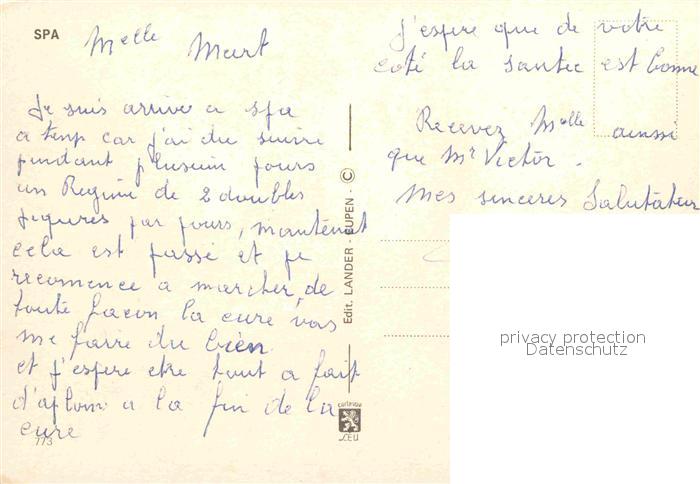 SPA
Melle Mart
Je suis arriver a spa
a temp car j'ai du suivre
pendant plusieur jours
un Regime de 2 doubles
piqures par jours, maintenat
cela est passé et je
recomence a marcher, de
toute façon la cure vas
me faire du bien
et j'espere etre tout a fait
d'aplomb a la fin de la
cure
113
Edit. LANDER - EUPEN - ©
J'espere que de votre
coté la santee est bonne
Recevez Melle ainssi
que Mr Victor.
Mes sinceres Salutateur
privacy protection
Datenschutz